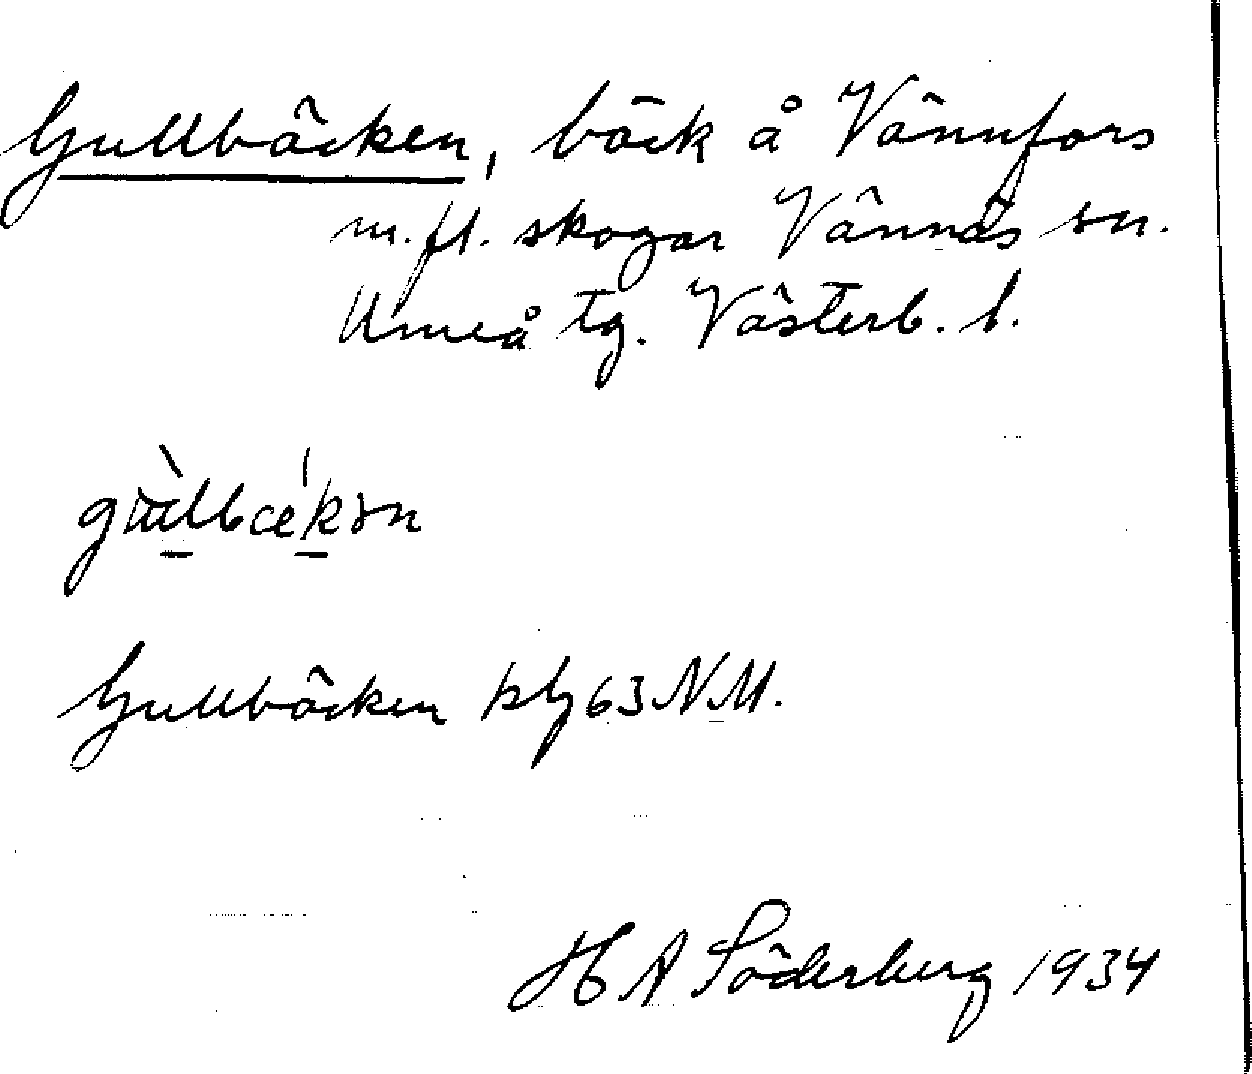 Gullbäcken, bäck å Vännfors
m.fl. skogar Vännäs sn.
Umeå tg. Västerb. l.
Gullbäcken 63 N.M.
H A Söderberg 1934